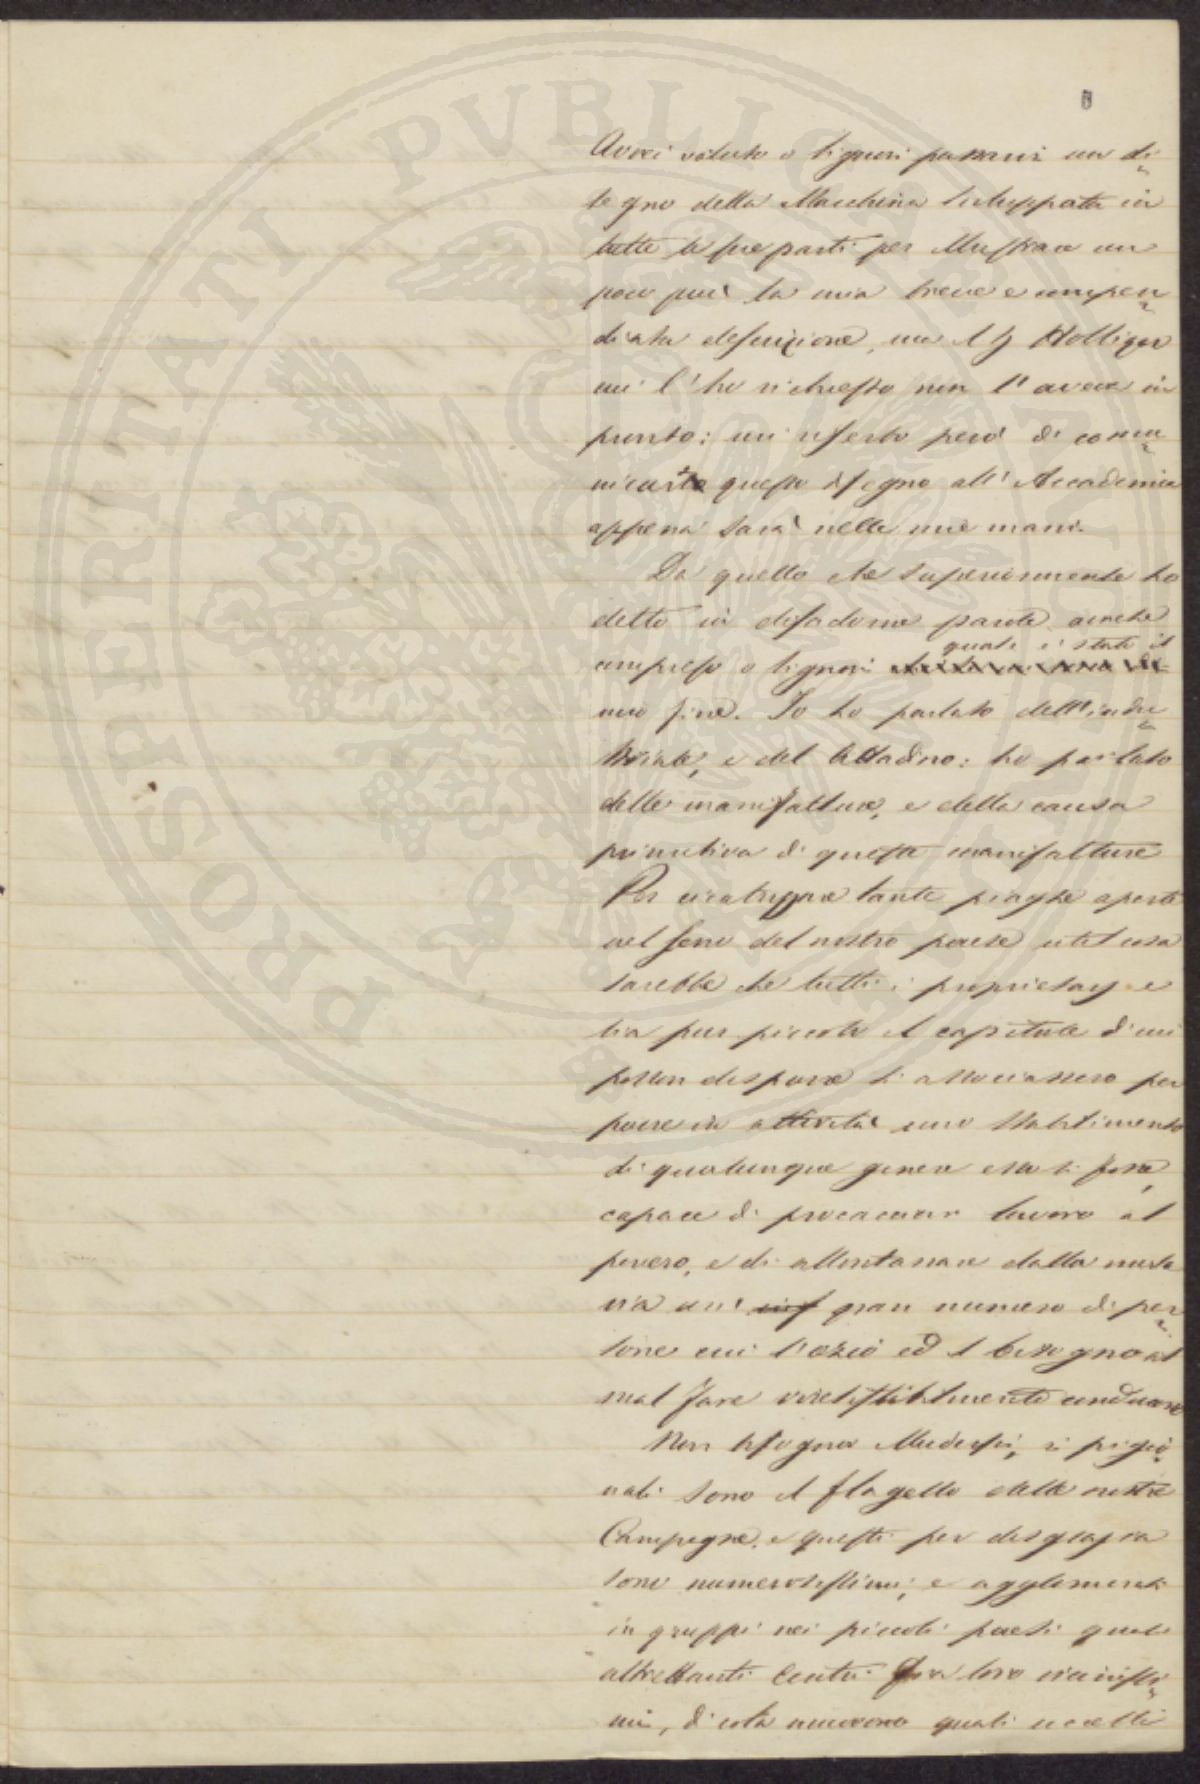 PROSPERITATI PVBLICAE AVGENDAE
Avrei voluto o Signori passarvi un di
segno della Macchina sviluppata in
tutte le sue parti per illustrare un
poco più la mia breve e compen
diata descrizione, ma il Sg Holliger
cui l'ho richiesto non l'aveva in
pronto: mi riserbo però di comu
nicare questo disegno all'Accademia
appena sarà nelle mie mani.
Da quello che superiormente ho
detto in disadorne parole avrete
compreso o Signori quale è stato il
mio fine. Io ho parlato dell'indu
striale, e del Cittadino: ho parlato
delle manifatture, e della causa
primitiva di queste manifatture
Per cicatrizzare tante piaghe aperte
nel seno del nostro paese util cosa
sarebbe che tutti i proprietarj e
sia pur piccolo il capitale di cui
posson disporre si associassero per
porre in attività uno Stabilimento
di qualunque genere esso si fosse,
capace di procacciar lavoro al
povero, e di allontanare dalla mala
via un gran numero di per
sone cui l'ozio ed il bisogno al
mal fare irresistibilmente conducono
Non bisogna illudersi, i pigio
nali sono il flagello delle nostre
Campagne, e questi per disgrazia
sono numerosissimi, e agglomerati
in gruppi nei piccoli paesi quali
altrettanti Centri fra loro vicinissi
mi, di costà muovono quali uccelli